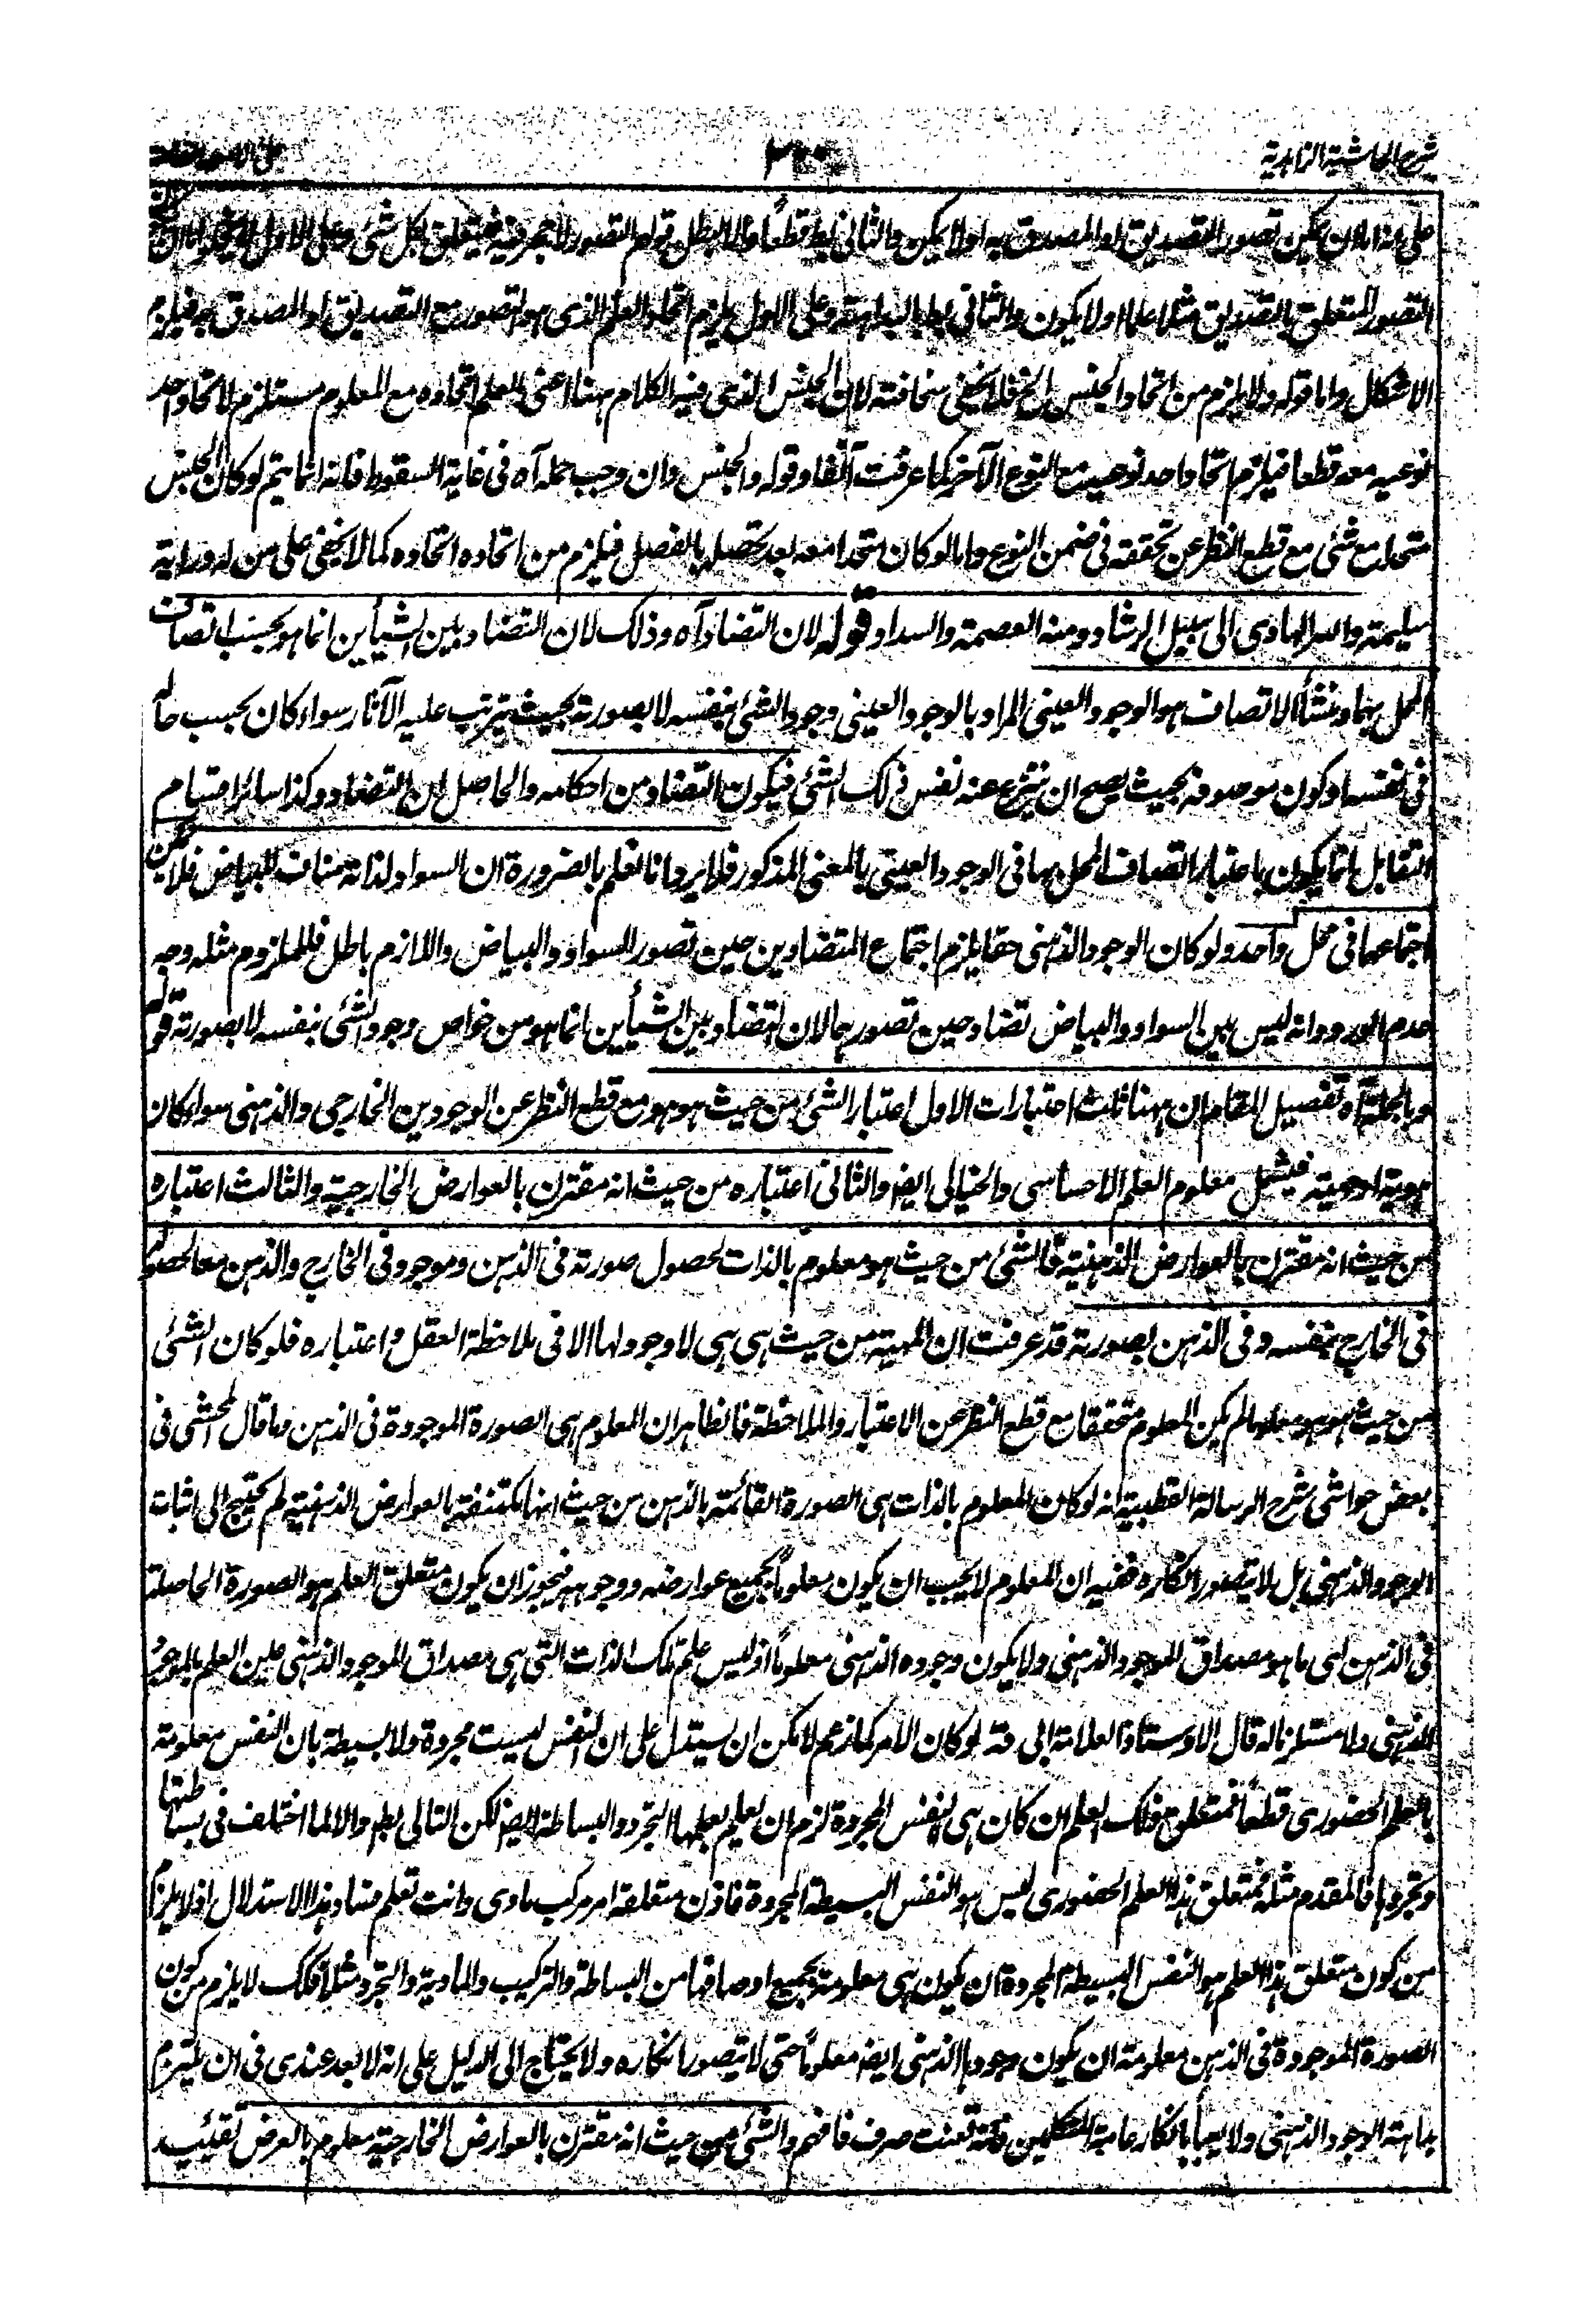 شرح الحاشية الزاهدية
على هذا اما ان يمكن تصور التصديق او المصدق به اولا يمكن والثاني بط قطعا والا لبطل قولهم التصور لا حجر فيه فيتعلق بكل شئ وعلى الاول لا يخلو اما ان
التصور المتعلق بالتصديق مثلا علما اولا يكون والثاني بط بالبداهة وعلى الاول يلزم اتحاد العلم الذى هو التصور مع التصديق او المصدق به فيلزم
الاشكال واما قوله ولا يلزم من اتحاد الجنس الخ فلا يخفى سخافته لان الجنس الذى فيه الكلام ههنا اعنى العلم اتحاده مع المعلوم مستلزم لاتحاد احد
نوعيه معه قطعا فيلزم اتحاد احد نوعيه مع النوع الآخر كما عرفت آنفا وقوله والجنس وان وجب حمله آه فى غاية السقوط فانه انما يتم لو كان الجنس
متحدا مع شئ مع قطع النظر عن تحققه فى ضمن النوع واما لو كان متحدا معه بعد تحصله بالفصل فيلزم من اتحاده اتحاده كما لا يخفى على من له دراية
سليمة والله الهادى الى سبيل الرشاد ومنه العصمة والسداد قوله لان التضاد آه وذلك لان التضاد بين الشيأين انما هو بحسب اتصاف
المحل بهما ومنشأ الاتصاف هو الوجود العينى المراد بالوجود العينى وجود الشئ بنفسه لا بصورته بحيث يترتب عليه الآثار سواء كان بحسب حاله
فى نفسه او كون موصوفه بحيث يصح ان ينتزع عنه نفس ذلك الشئ فيكون التضاد من احكامه والحاصل ان التضاد وكذا سائر اقسام
التقابل انما يكون باعتبار اتصاف المحل بها فى الوجود العينى بالمعنى المذكور فلا يرد انا نعلم بالضرورة ان السواد لذاته مناف للبياض فلا يمكن
اجتماعهما فى محل واحد ولو كان الوجود الذهنى حقا يلزم اجتماع المتضادين حين تصور السواد والبياض واللازم باطل فالملزوم مثله وجه
عدم الورود انه ليس بين السواد والبياض تضاد حين تصورهما لان التضاد بين الشيأين انما هو من خواص وجود الشئ بنفسه لا بصورته قوله
وبالجملة آه تفصيل المقام ان ههنا ثلث اعتبارات الاول اعتبار الشئ من حيث هو هو مع قطع النظر عن الوجودين الخارجى والذهنى سواء كان
هوية او مهية فيشمل معلوم العلم الاحساسى والخيالى ايضا والثانى اعتباره من حيث انه مقترن بالعوارض الخارجية والثالث اعتباره
من حيث انه مقترن بالعوارض الذهنية فالشئ من حيث هو معلوم بالذات لحصول صورته فى الذهن وموجود فى الخارج والذهن معا لحصوله
فى الخارج بنفسه وفى الذهن بصورته قد عرفت ان المهية من حيث هى هى لا وجود لها الا فى ملاحظة العقل واعتباره فلو كان الشئ
من حيث هو هو معلوما لم يكن المعلوم متحققا مع قطع النظر عن الاعتبار والملاحظة فالظاهر ان المعلوم هى الصورة الموجودة فى الذهن وما قال المحشى فى
بعض حواشى شرح الرسالة القطبية انه لو كان المعلوم بالذات هى الصورة القائمة بالذهن من حيث انها مكتنفة بالعوارض الذهنية لم يحتج الى اثبات
الوجود الذهنى بل لا يتصور انكاره ففيه ان المعلوم لا يجب ان يكون معلوما بجميع عوارضه ووجوهه فيجوز ان يكون متعلق العلم هو الصورة الحاصلة
فى الذهن اى ما هو مصداق الموجود الذهنى ولا يكون وجوده الذهنى معلوما اذ ليس علم تلك الذات التى هى مصداق الموجود الذهنى عين العلم بالوجود
الذهنى ولا مستلزما له قال الاوستاذ العلامة ابى قده لو كان الامر كما زعم لامكن ان يستدل على ان النفس ليست مجردة ولا بسيطة بان النفس معلومة
بالعلم الحضورى قطعا فمتعلق ذلك العلم ان كان هى النفس المجردة لزم ان يعلم بعلمها التجرد والبساطة ايضا لكن التالى بط والا لما اختلف فى بساطتها
وتجردها فالمقدم مثله فمتعلق هذا العلم الحضورى ليس هو النفس البسيطة المجردة فاذن متعلقه امر مركب مادى وانت تعلم فساد هذا الاستدلال اذ لا يلزم
من كون متعلق هذا العلم هو النفس البسيطة المجردة ان يكون هى معلومة بجميع اوصافها من البساطة والتركيب والمادية والتجرد مثلا فكذلك لا يلزم من كون
الصورة الموجودة فى الذهن معلومة ان يكون وجودها الذهنى ايضا معلوما حتى لا يتصور انكاره ولا يحتاج الى الدليل على انه لا بعد عندى فى ان يلتزم
بداهة الوجود الذهنى ولا يعبأ بانكار عامة المتكلمين فانه تعنت صرف فافهم والشئ من حيث انه مقترن بالعوارض الخارجية معلوم بالعرض تقييد